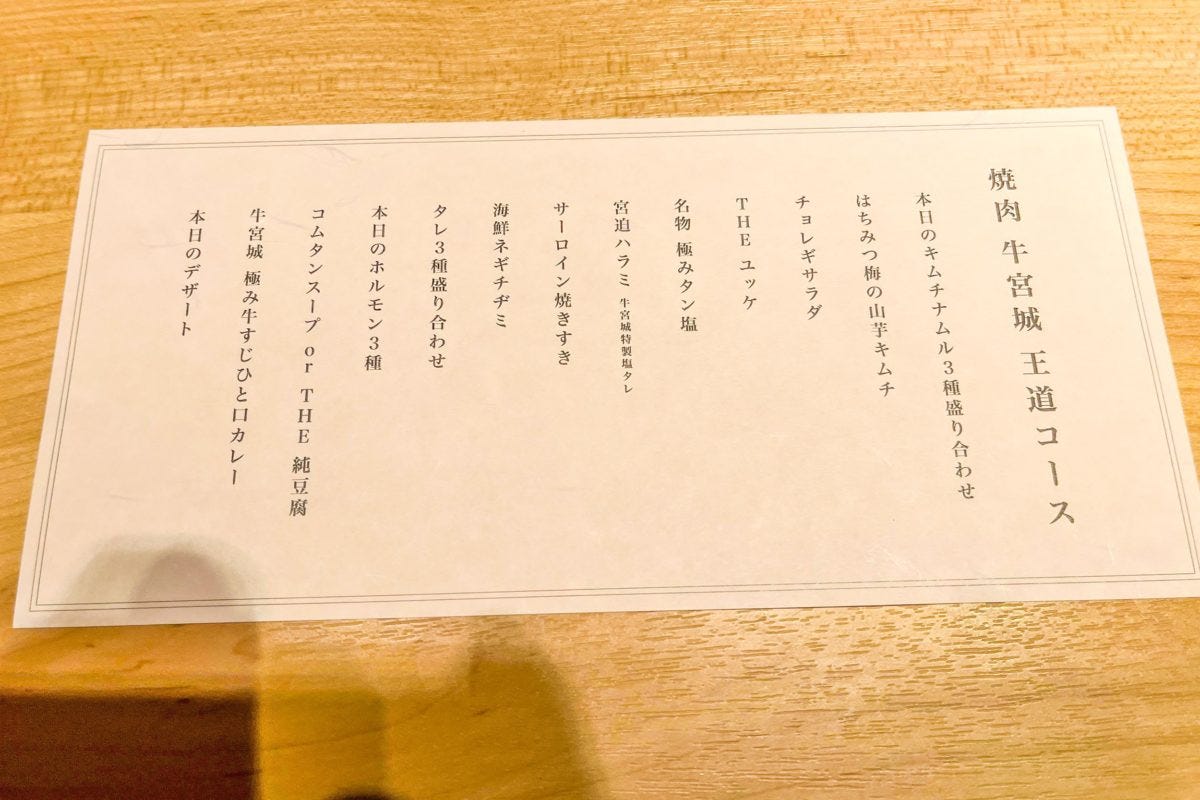 焼肉 牛宮城 王道コース
本日のキムチナムル3種盛り合わせ
はちみつ梅の山芋キムチ
チョレギサラダ
THE ユッケ
名物 極みタン塩
宮迫ハラミ 牛宮城特製塩タレ
サーロイン焼きすき
海鮮ネギチヂミ
タレ3種盛り合わせ
本日のホルモン3種
コムタンスープ or THE 純豆腐
牛宮城 極み牛すじひと口カレー
本日のデザート